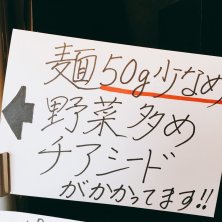 麺50g少なめ
野菜多め
チアシード
がかかってます!!